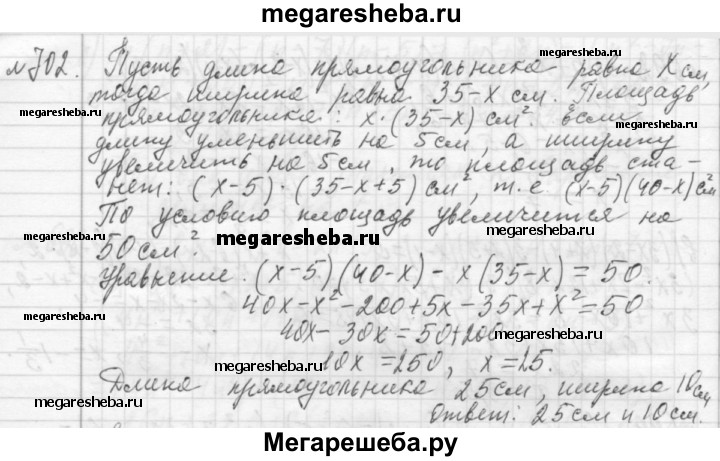 megaresheba.ru
№702. Пусть длина прямоугольника равна x см,
тогда ширина равна 35-x см. Площадь
прямоугольника: x·(35-x) см². Если
длину уменьшить на 5см, а ширину
увеличить на 5см, то площадь ста-
нет: (x-5)·(35-x+5) см², т.е. (x-5)(40-x) см²
По условию площадь увеличится на
50см².
Уравнение. (x-5)(40-x)-x(35-x)=50.
40x-x²-200+5x-35x+x²=50
40x-30x=50+200
10x=250, x=25.
Длина прямоугольника 25см, ширина 10см
Ответ: 25см и 10см.
megaresheba.ru
megaresheba.ru
megaresheba.ru
megaresheba.ru
megaresheba.ru
megaresheba.ru
megaresheba.ru
megaresheba.ru
Мегарешеба.ру